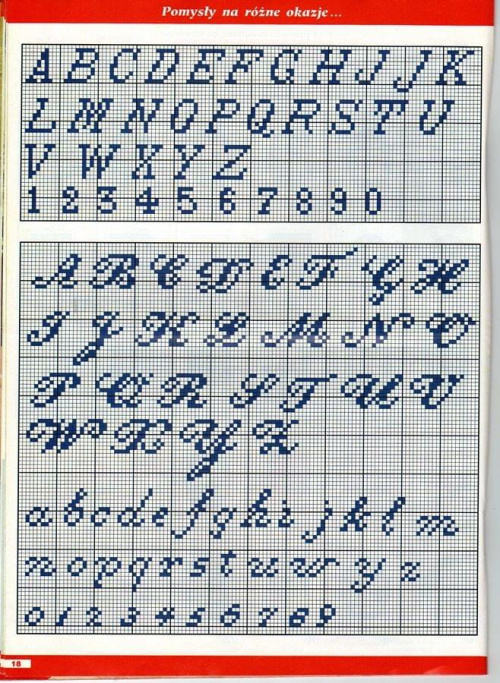 Pomysły na różne okazje...
A B C D E F G H I J K
L M N O P Q R S T U
V W X Y Z
1 2 3 4 5 6 7 8 9 0
A B C D E F G H
I J K L M N O
P Q R S T U V
W X Y Z
a b c d e f g h i j k l m
n o p q r s t u w y z
0 1 2 3 4 5 6 7 8 9
18